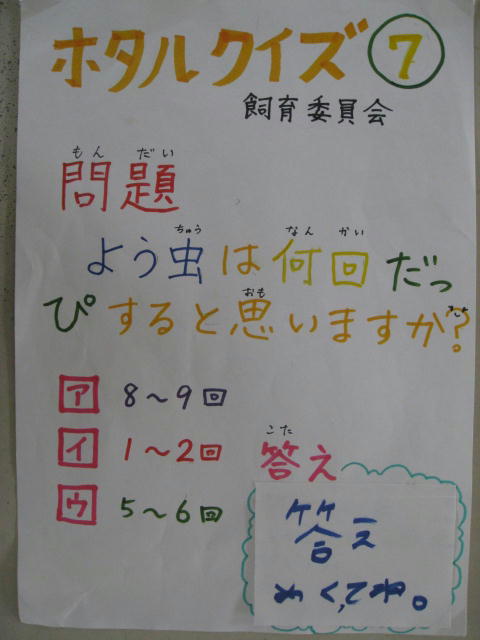 ホタルクイズ⑦
飼育委員会
もん だい
問題
ちゅう なん かい
よう虫は何回だっ
おも
ぴすると思いますか?
ア 8～9回
イ 1～2回
ウ 5～6回
こた
答え
答え
めくってね。